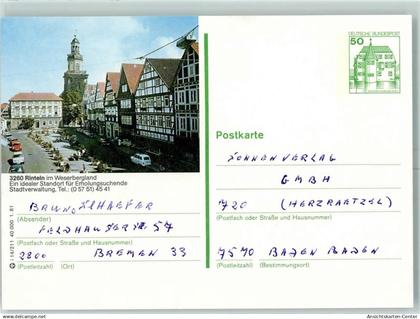 DEUTSCHE BUNDESPOST
50
3260 Rinteln im Weserbergland
Ein idealer Standort für Erholungsuchende
Stadtverwaltung, Tel.: (0 57 51) 45 41
Postkarte
SONNENVERLAG
GMBH
BRUNO SCHAEFER
(Absender)
720 (HERZRAETSEL)
(Postfach oder Straße und Hausnummer)
FELDHAUSER STR 57
(Postfach oder Straße und Hausnummer)
2800 BREMEN 33
(Postleitzahl) (Ort)
7570 BADEN BADEN
(Postleitzahl) (Bestimmungsort)
40 000 1.81
Ansichtskarten-Center